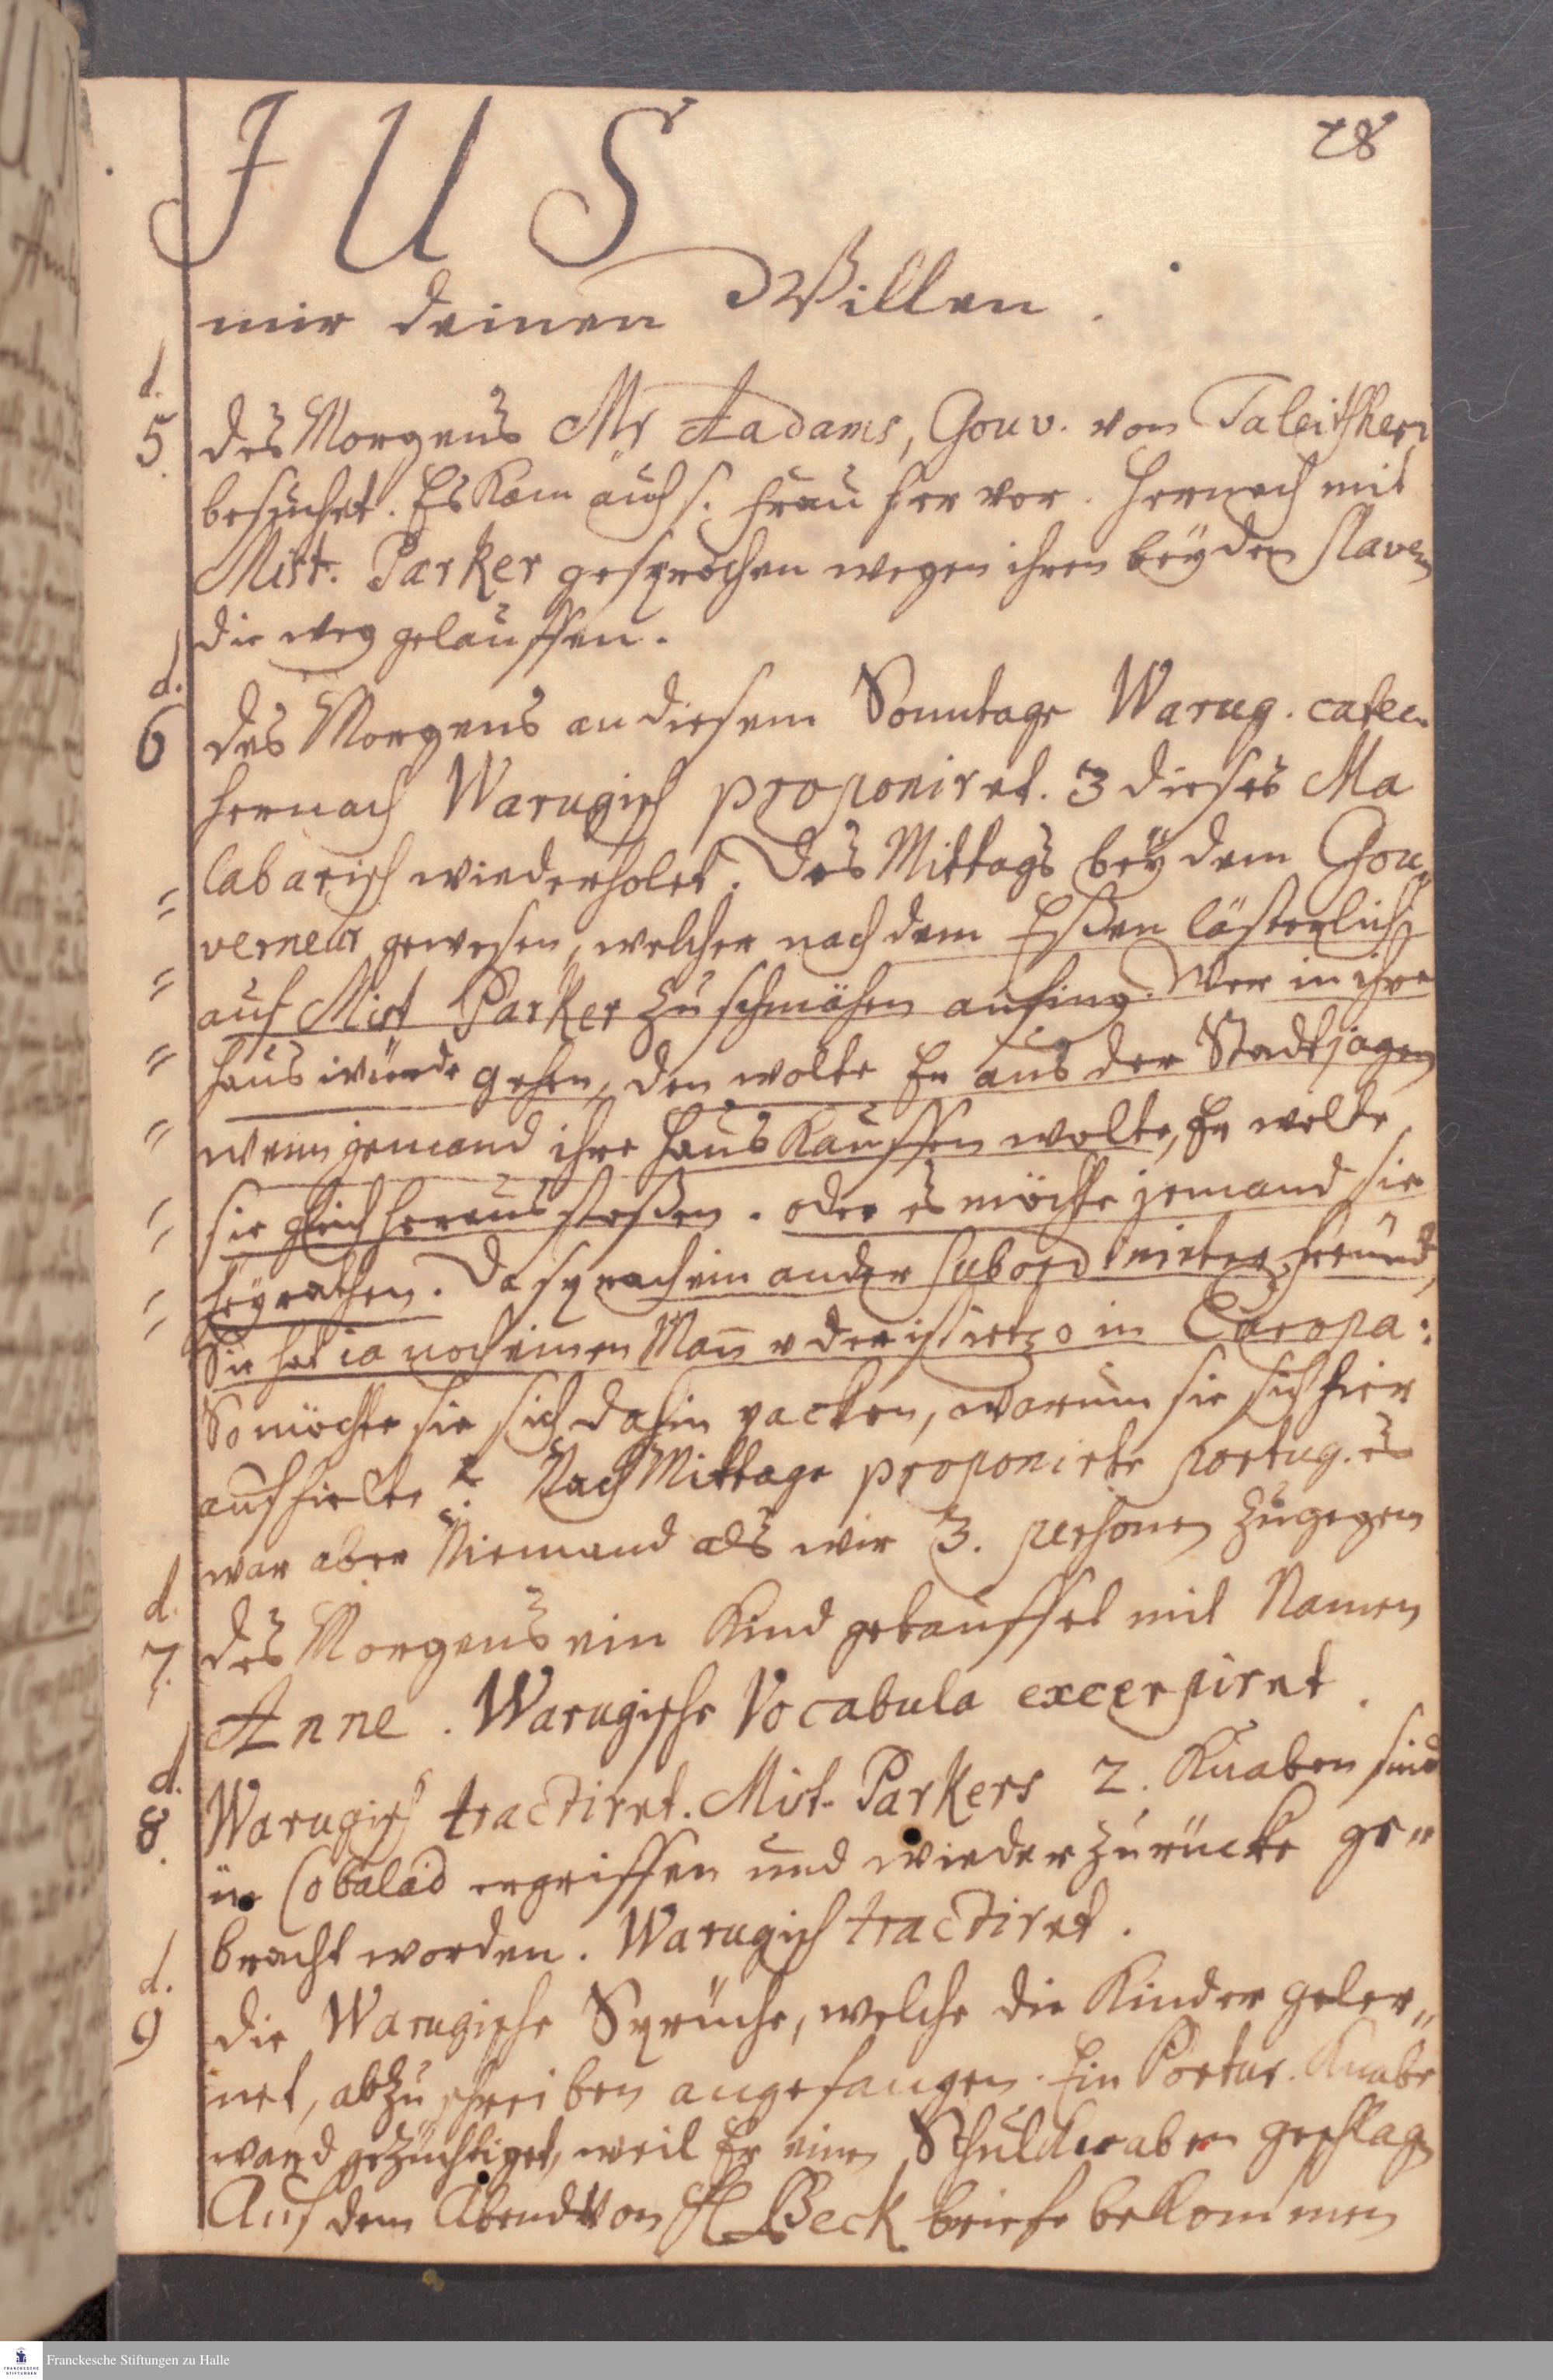 28
J U S
mir deinen Willen.
d.
5. des Morgens Mr Aadams, Gouv. von
besuchet. Es kam auch s. Frau hervor. Hernach mit
Mist. Parker gesprochen wegen ihren beyden Slaven
die weg gelauffen.
d.
6 des Morgens an diesem Sonntage Warug. catec.
hernach Warugisch proponiret. 3 dieses Ma
labarisch wiederholet. Des Mittags bey dem Gou„
verneur gewesen, welcher nach dem Eßen lästerlich
auf Mist Parker zu schmähen anfing. Wer in ihre
Haus würde gehen, den wolte Er aus der Stadt jagen
wenn jemand ihre Haus kauffen wolte, Er wolte
sie gleich heraus stoßen. oder es möchte jemand sie
heyrathen. Da sprach ein ander subordinirter Freund,
Sie hat ia noch einen Mann u der ist ietzo in Europa:
So möchte sie sich dahin packen, warum sie sich hier
aufhielte? Nach Mittage proponirte portug. es
war aber Niemand als wir 3. personen zugegen
d.
7. des Morgens ein Kind getauffet mit Namen
Anne. Warugische Vocabula excerpiret.
d.
8. Warugisch tractiret. Mist. Parkers 2. Knaben sind
in Cobalad ergriffen und wieder zurücke ge„
bracht worden. Warugisch tractiret.
d.
9 die Warugische Sprüche, welche die Kinder geler„
net, abzuschreiben angefangen. Ein Portug. Knabe
ward gezüchtiget, weil Er einen Schulknaben geschlagen
Auf dem Abend von H Beck briefe bekommen
Franckesche Stiftungen zu Halle